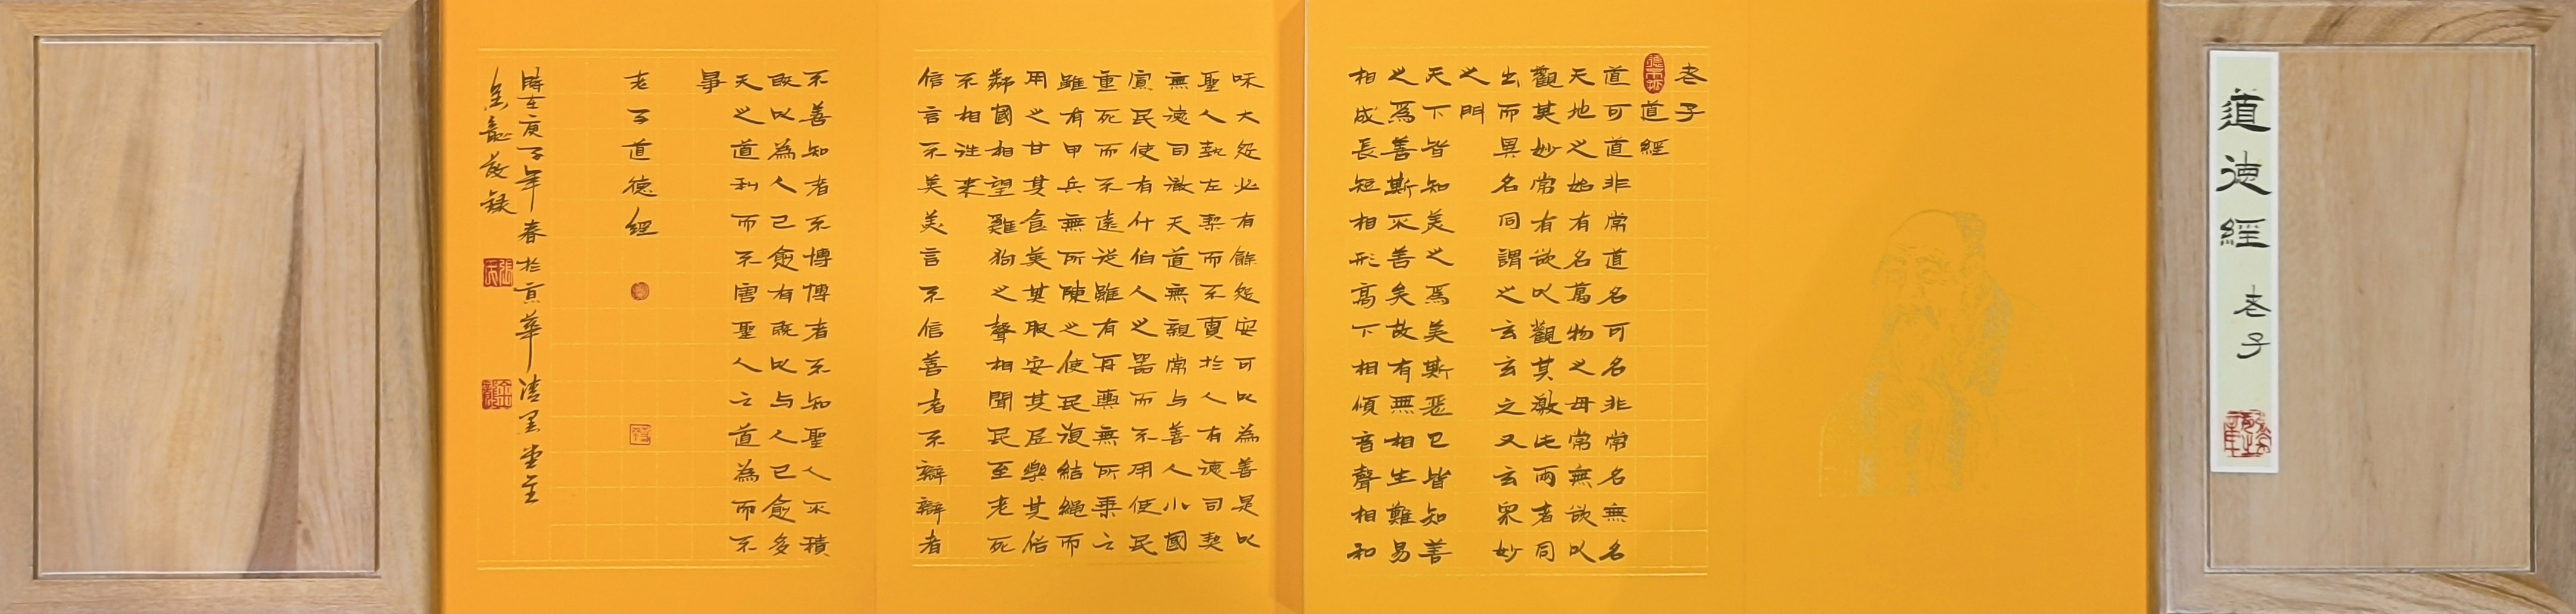 道德經 老子
老子
道經
道可道非常道名可名非常名無名
天地之始有名萬物之母常無欲以
觀其妙常有欲以觀其徼此兩者同
出而異名同謂之玄玄之又玄眾妙
之門
天下皆知美之爲美斯惡已皆知善
之爲善斯不善矣故有無相生難易
相成長短相形高下相傾音聲相和
和大怨必有餘怨安可以為善是以
聖人執左契而不責於人有德司契
無德司徹天道無親常与善人小國
寡民使有什伯人之器而不用使民
重死而不遠徙雖有舟輿無所乘之
雖有甲兵無所陳之使民復結繩而
用之甘其食美其服安其居樂其俗
鄰國相望雞狗之聲相聞民至老死
不相往來
信言不美美言不信善者不辯辯者
不善知者不博博者不知聖人不積
既以為人己愈有既以与人己愈多
天之道利而不害聖人之道為而不
爭
老子道德經
時在庚子年春於京華清墨堂主
金龍敬錄